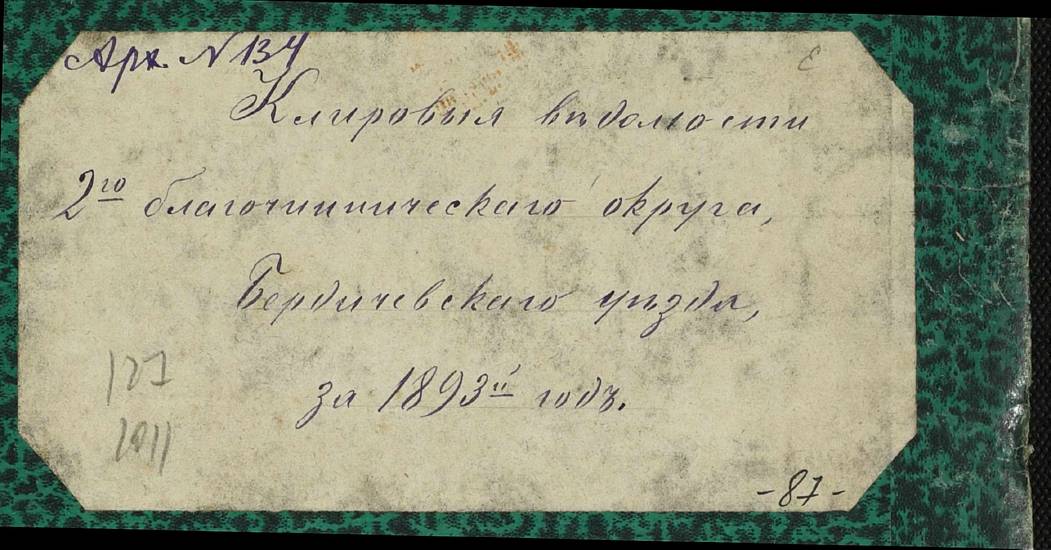 Арх. N 134
Клировыя вѣдомости
2го благочинническаго округа,
Бердичевскаго уѣзда,
за 1893й годъ.
127
1011
-87-